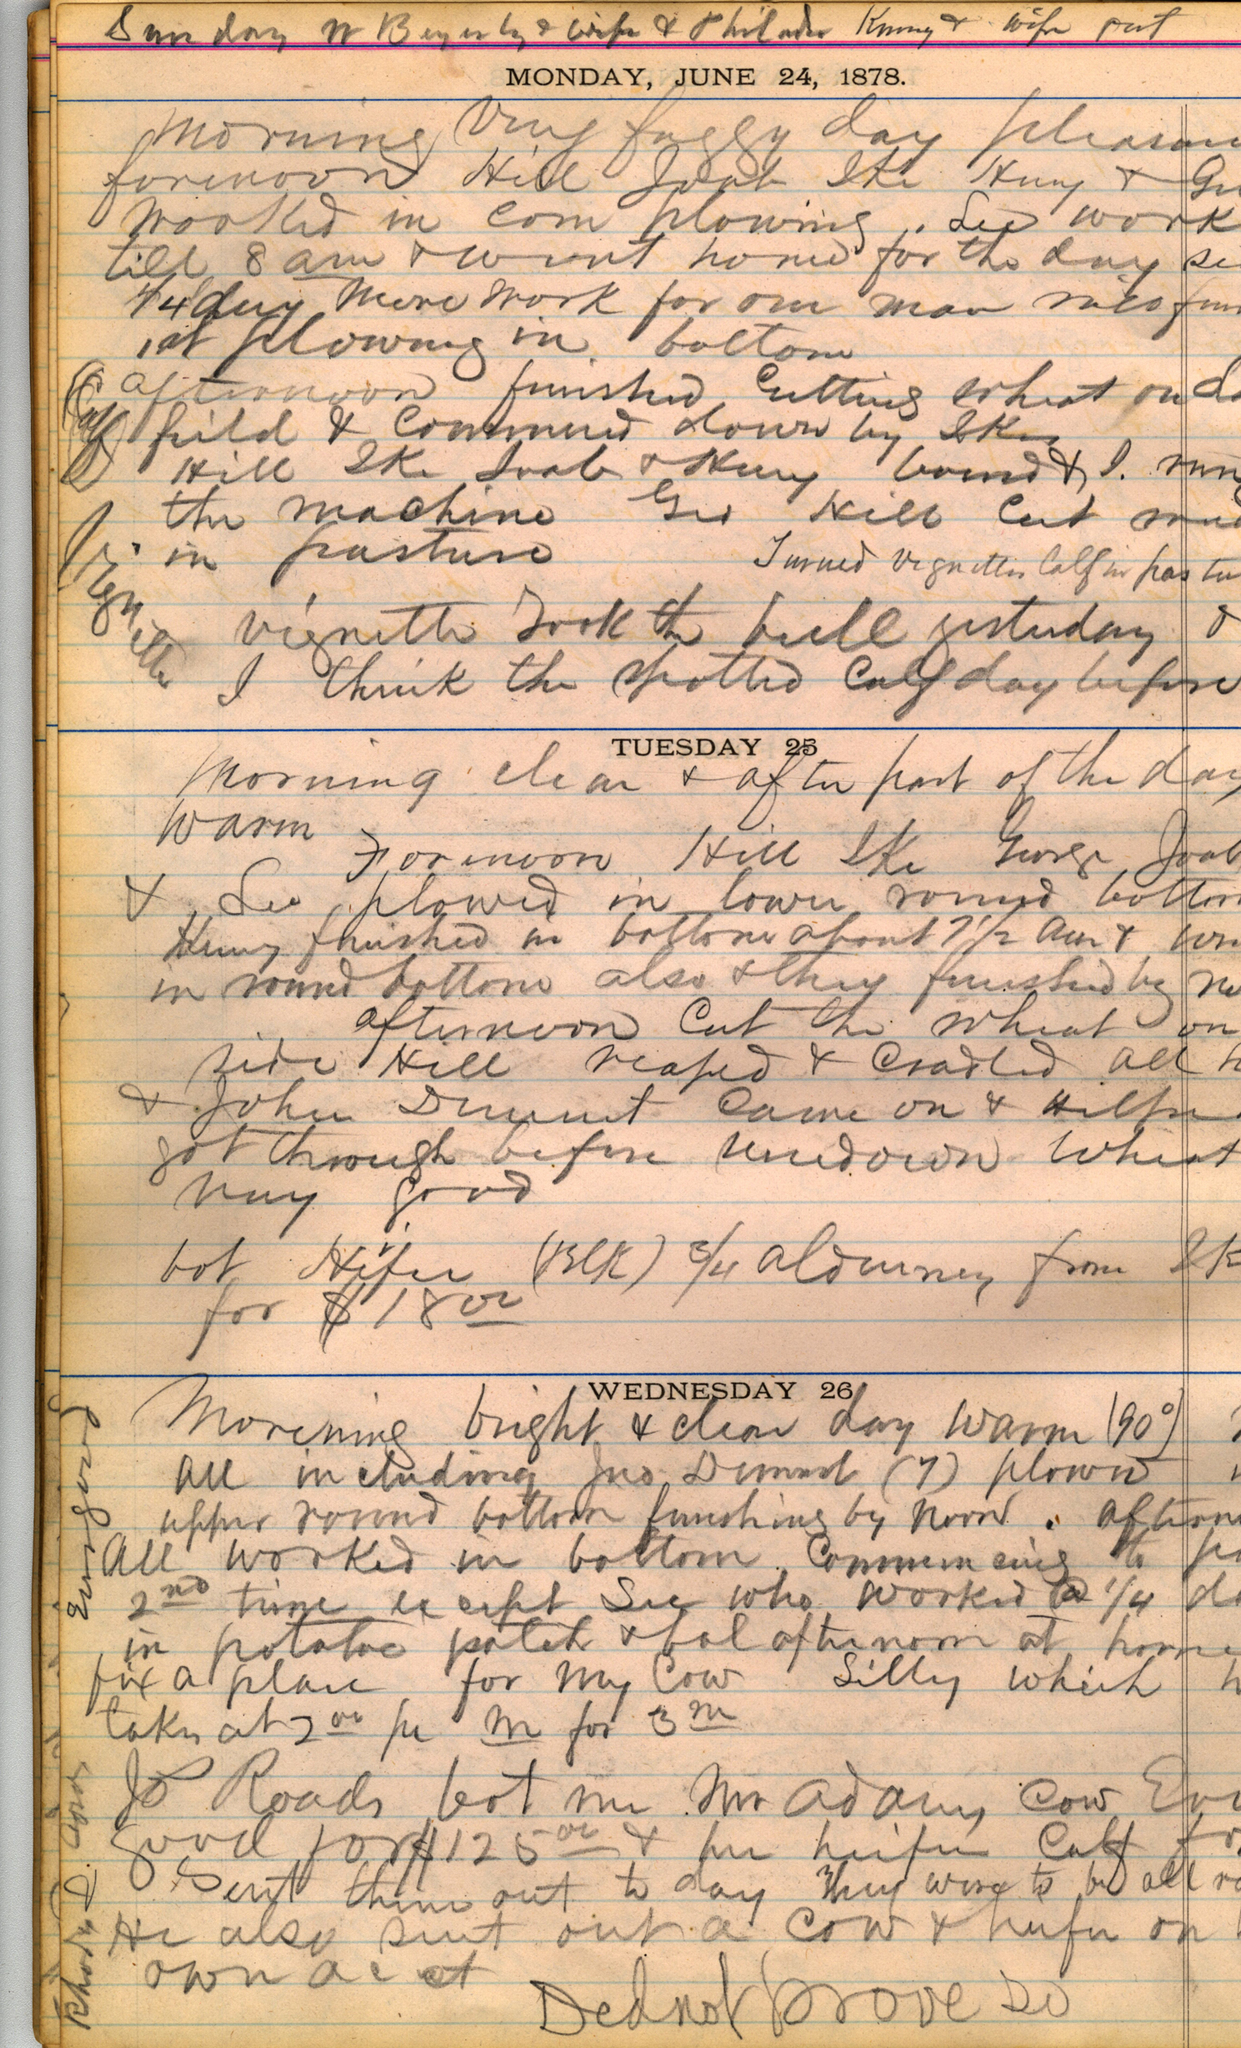 Sunday W Beyerly & wife & Philader Kinny & wife out
MONDAY, JUNE 24, 1878.
Morning Very foggy day pleasan
forenoon Hill Joab Ike Henry & Ge
worked in corn plowing. Lee work
till 8 am & went home for the day
1/4 day more work for one man
at plowing in bottom
afternoon finished cutting wheat on
field & commenced down by Ikes
Hill Ike Joab & Henry bound & I run
the machine Geo Hill cut
in pasture
Turned Vignettes Calf in pastu
Calf
Vignette
Vignette Took the bull yesterday &
I think the spotted Calf day before
TUESDAY 25
Morning clear & after part of the day
warm
Forenoon Hill Ike George Joab
& Lee plowed in lower round bottom
Henry finished in bottom about 7 1/2 am & wen
in round bottom also & they finished by no
afternoon Cut the wheat on
side Hill reaped & Cradled all h
& John Dument Came on & Helped
got through before sundown Wheat
very good
bot Heifer (Blk) 3/4 Alderney from Ik
for $18 00
WEDNESDAY 26
Morning bright & clear day warm (90°)
All including Jno. Dument (7) plowed
upper round bottom finishing by noon. aftern
All worked in bottom Commencing to
2nd time except Lee who worked a 1/4 da
in potatoe patch & bal afternoon at home
fix a place for My Cow Silly which h
takes at 2 00 per m for 3 m
Evergood
Jo Roads bot me Mr Adams Cow Ever
good for $125 00 & her heifer Calf for
Sent them out to day They were to be all
He also sent out a Cow & heifer on
own acct
Did not prove so
Rhody D.